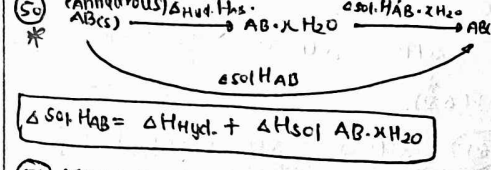 50 (Anhydrous) Δ Hyd. H AB. Δ sol. H AB·xH2O
* AB(s) → AB·xH2O → AB(
Δ sol H AB
Δ sol. H AB = Δ H Hyd. + Δ H sol AB·xH2O